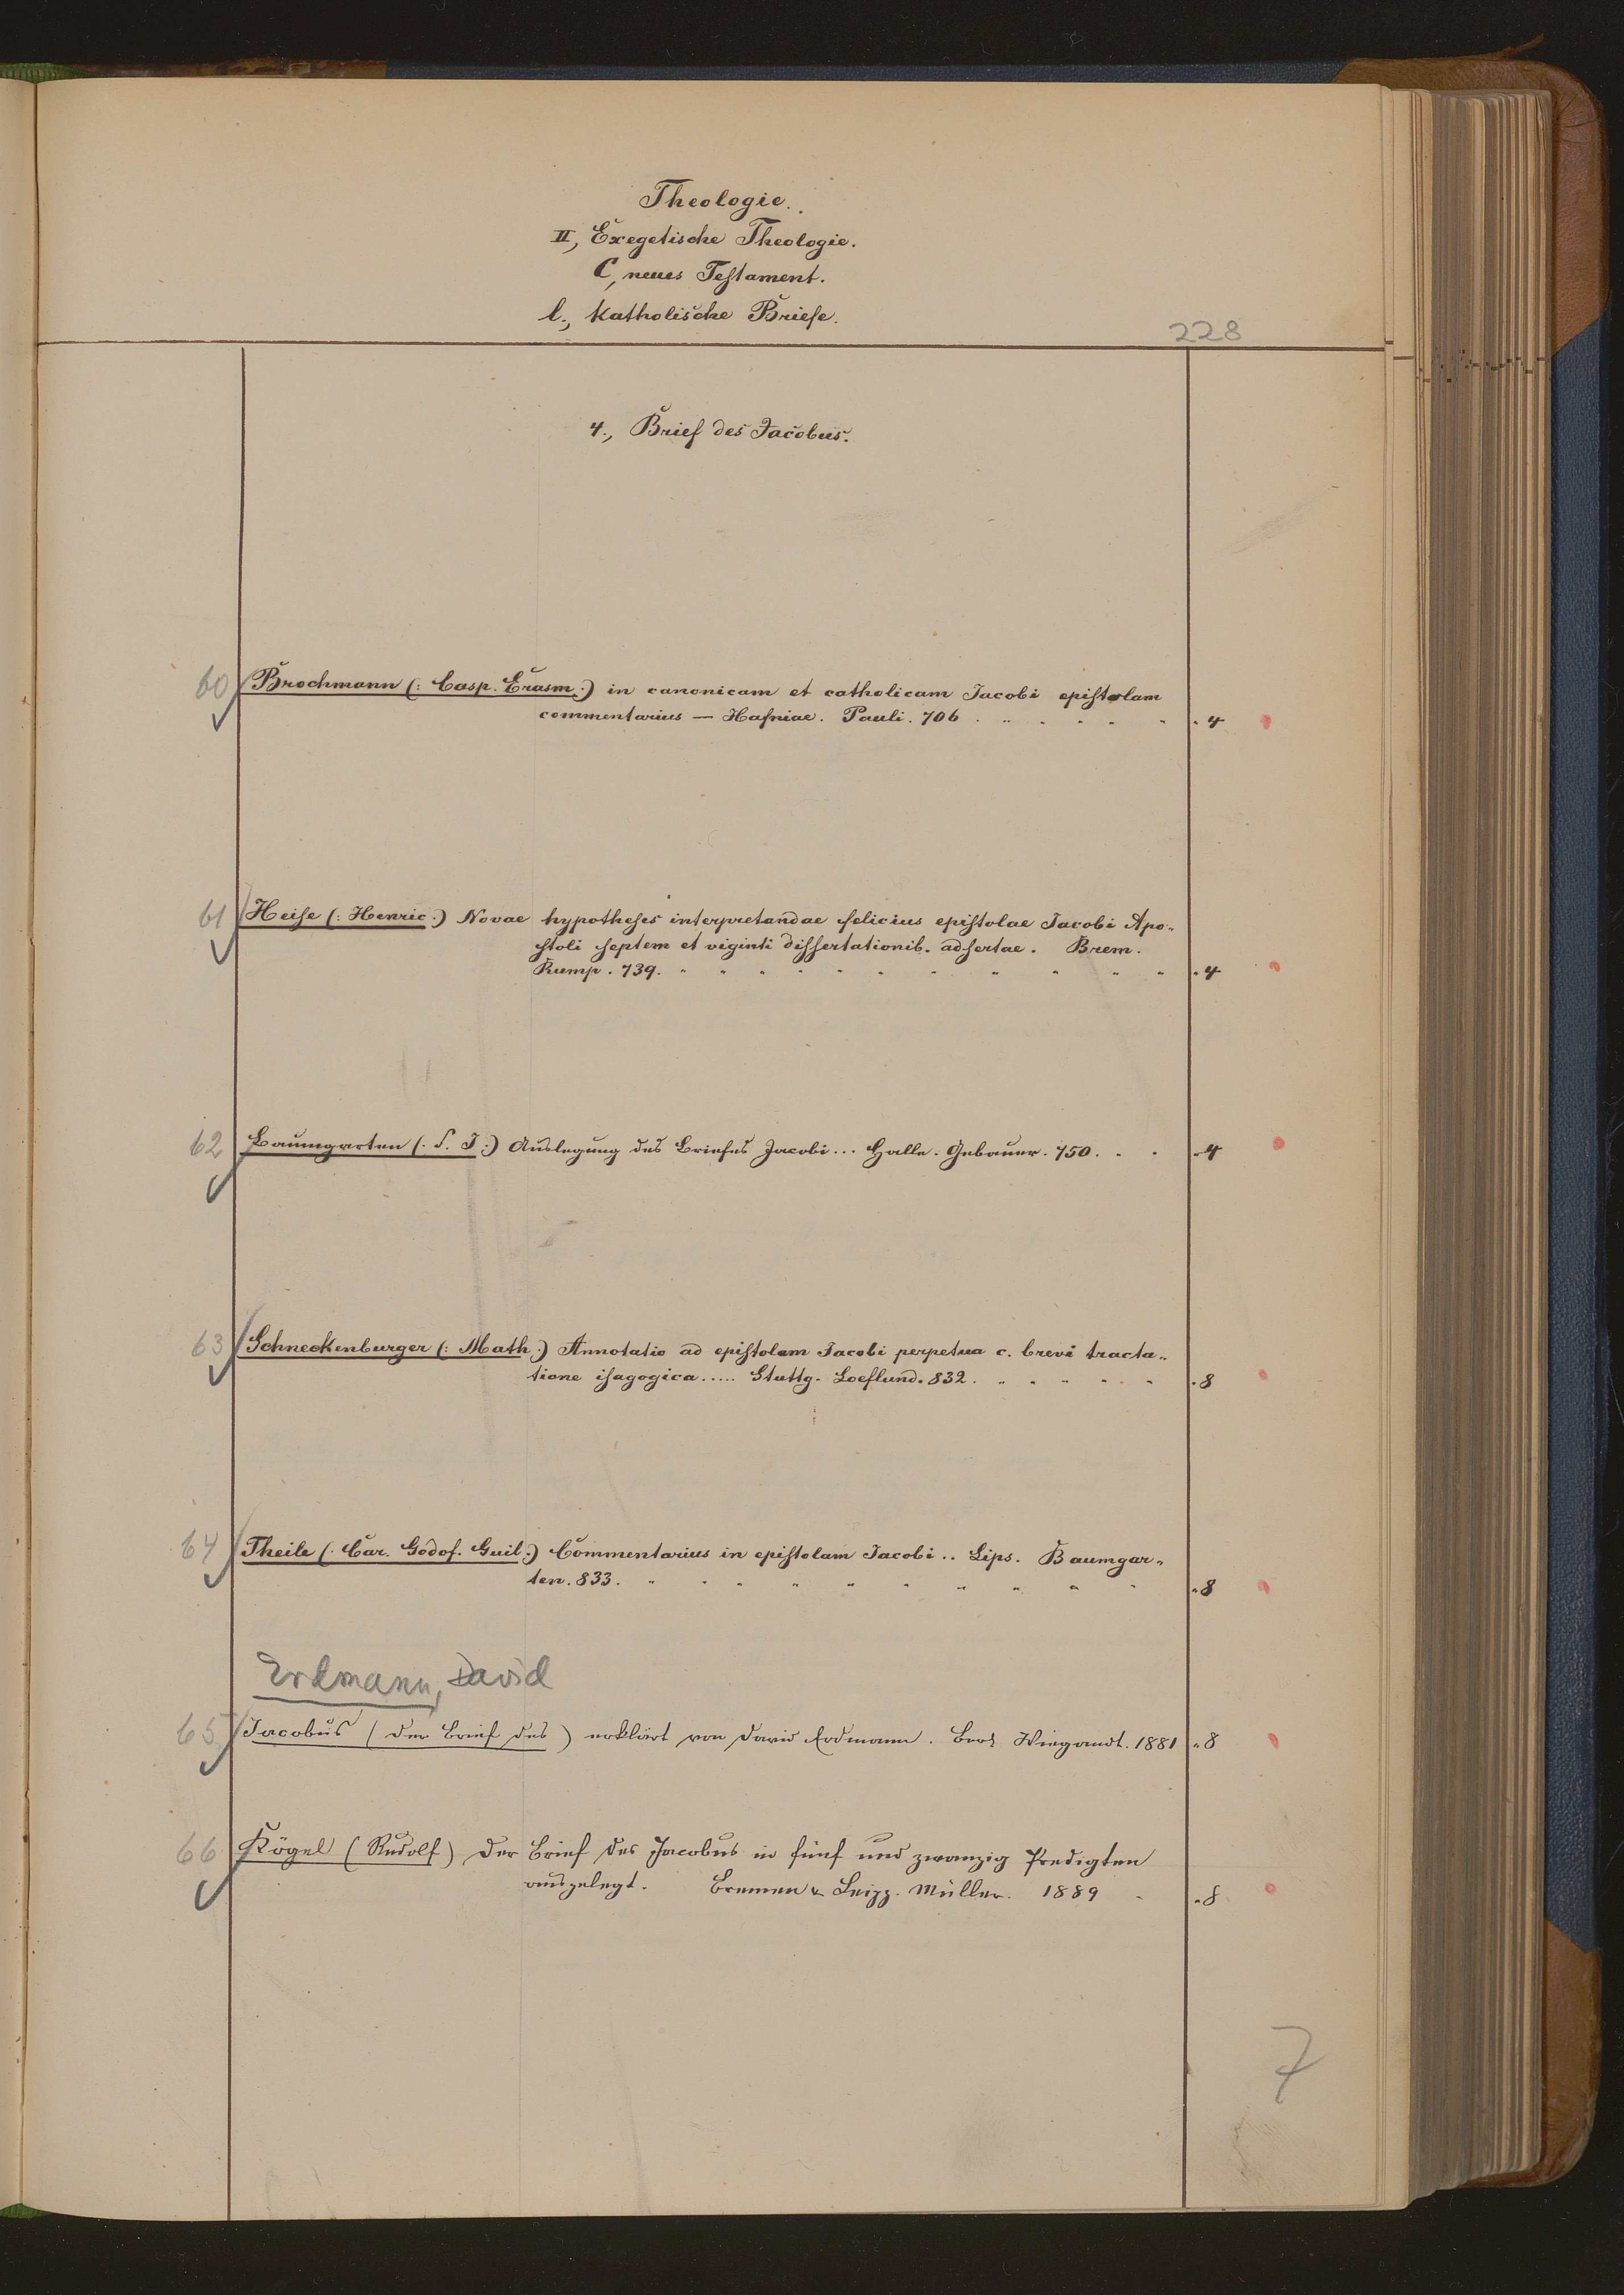 Theologie.
II, Exegetische Theologie.
C, neues Testament.
l., Katholische Briefe.
228
4., Brief des Jacobus.
60 Brochmann (: Casp. Erasm :) in canonicam et catholicam Jacobi epistolam
commentarius — Hafniae. Pauli. 706 . „ . . . „ „ 4
61 Heise (: Henric :) Novae hypotheses interpretandae felicius epistolae Jacobi Apo„
stoli septem et viginti dissertationib. adsertae. Brem.
Rump. 739. „ „ „ „ „ „ „ „ „ „ „ „ 4
62 Baumgarten (: S. J :) Auslegung des Briefes Jacobi... Halle. Gebauer. 750. . . „ 4
63 Schneckenburger (: Math :) Annotatio ad epistolam Jacobi perpetua c. brevi tracta„
tione isagogica..... Stuttg. Loeflund. 832. „ „ „ „ „ „ 8
64 Theile (: Car. Godof. Guil :) Commentarius in epistolam Jacobi .. Lips. Baumgar„
ten. 833. „ „ „ „ „ „ „ „ „ „ „ 8
Erdmann, David
65 Jacobus (der Brief des) erklärt von David Erdmann. Berl. Wiegandt. 1881 „ 8
66 Kögel (Rudolf) Der Brief des Jacobus in fünf und zwanzig Predigten
ausgelegt. Bremen & Leipz. Müller. 1889 „ „ 8
7